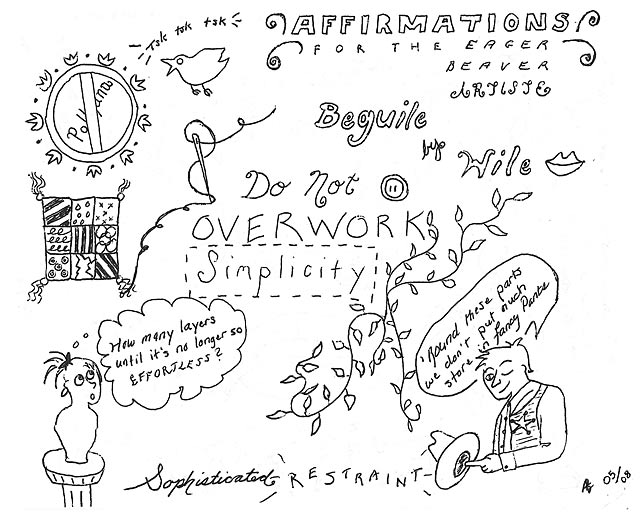 AFFIRMATIONS
FOR THE EAGER
BEAVER
ARTISTE
Tsk tsk tsk
Pollyanna
Beguile
by
Wile
Do Not
OVERWORK
Simplicity
How many layers
until it's no longer so
EFFORTLESS?
'Round these parts
we don't put much
store in fancy Pants
Sophisticated RESTRAINT
05/08